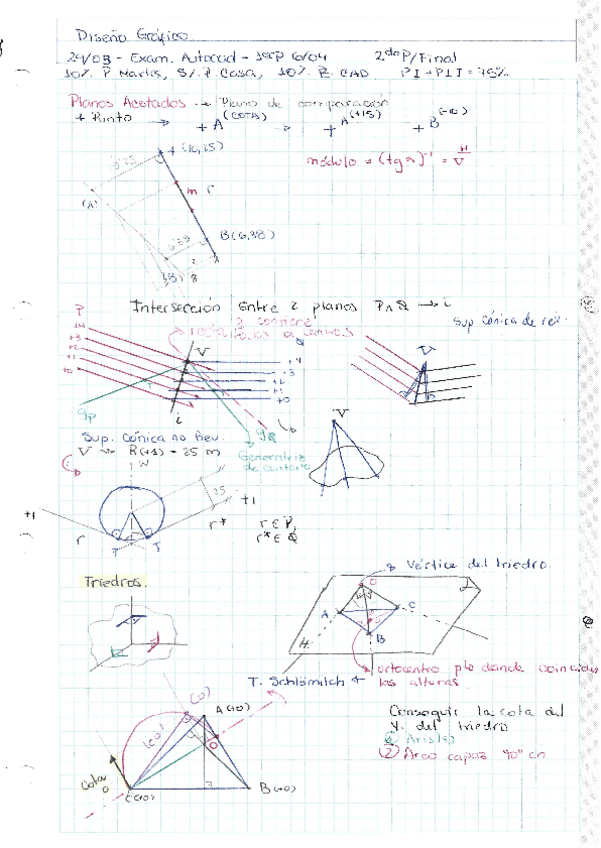 Diseño Gráfico
29/03 - Exam. Autocad - 1erp 6/04 2doP/Final
10%. P Marks, 5%. P. Casa, 10%. P. CAD PI + PII = 75%
Planos Acotados → Plano de comparación
+ Punto → +A (COTA) → +A (+15) +B (-10)
A (16,25)
módulo = (tg α)^-1 = H/V
m r
(A)
B(6,38)
(B)
Intersección Entre 2 planos P∩Q → i
recta contiene
Sup Cónica de rev.
P
+4
+3
+2
+1
+0
V
+4
+3
+2
+1
+0
i
gp
gQ
Generatriz de contacto
V
V
Sup. Cónica no Rev.
V → R(+1) = 25 m
25
+1
+1
r
r*
T
T
r ∈ P,
r* ∈ Q
Triedros.
Vértice del triedro.
O
A
C
B
H
ortocentro pto donde coinciden
las alturas.
T. Schlömilch
(O)
A(+0)
(O')
O
Cota 0
C(+0)
B(+0)
Conseguir la cota del
V. del triedro
① Arista
② Arco capaz 90° en